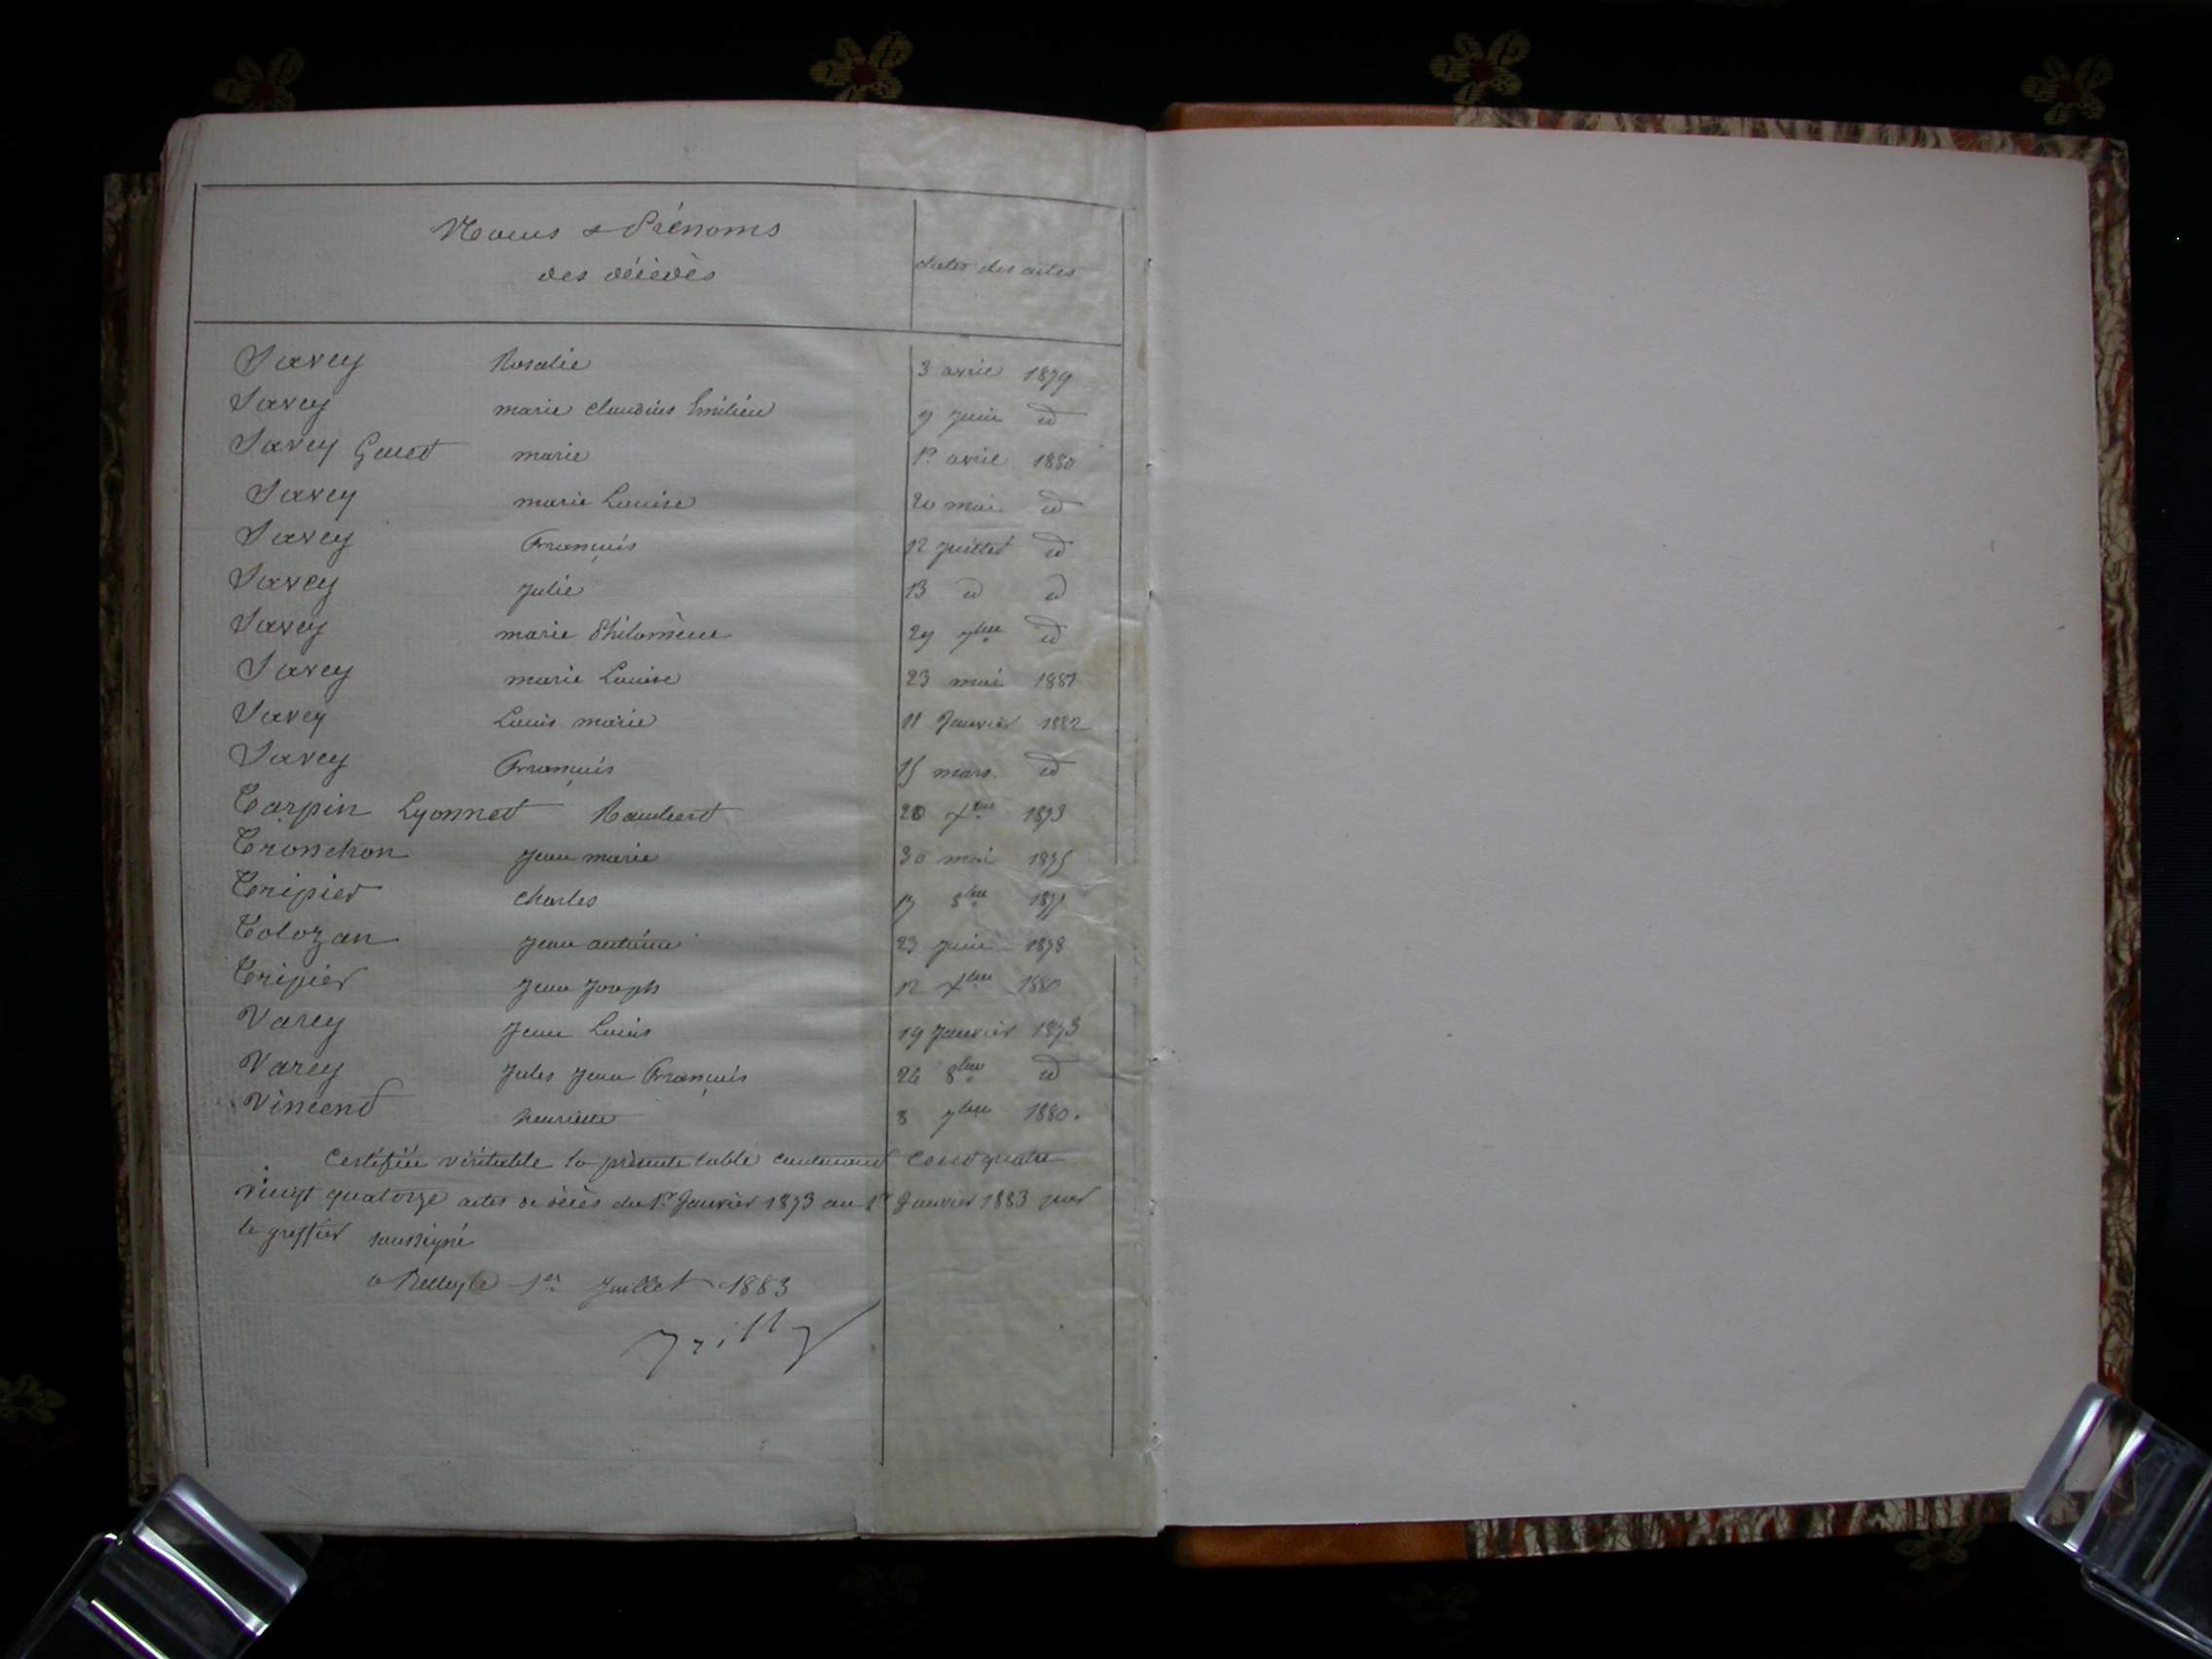 Noms & Prénoms
des décédés
dates des actes
Savey Rosalie 3 avril 1879
Savey marie claudius Emilien 9 juin id
Savey Guet marie 1er avril 1880
Savey marie Louise 20 mai id
Savey François 12 juillet id
Savey Julie 13 id id
Savey marie Philomène 29 7bre id
Savey marie Louise 23 mai 1881
Savey Louis marie 11 Janvier 1882
Savey François 15 mars id
Carpin Lyonnet Rambert 20 Xbre 1873
Tronchon Jean marie 30 mai 1875
Tripier charles 8bre 1877
Tolozan Jean antoine 23 juin 1878
Tripier Jean Joseph 12 Xbre 1880
Varey Jean Louis 19 Janvier 1873
Varey Jules Jean François 26 8bre id
Vincend henriette 8 7bre 1880.
Certifiée véritable la présente table contenant cent quatre
vingt quatorze actes de décès du 1er Janvier 1873 au 1er Janvier 1883 par
le greffier soussigné
à Belley le 1er Juillet 1883